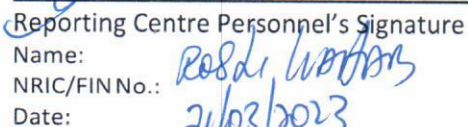 Reporting Centre Personnel's Signature
Name:
NRIC/FIN No.:
Date: 21/03/2023